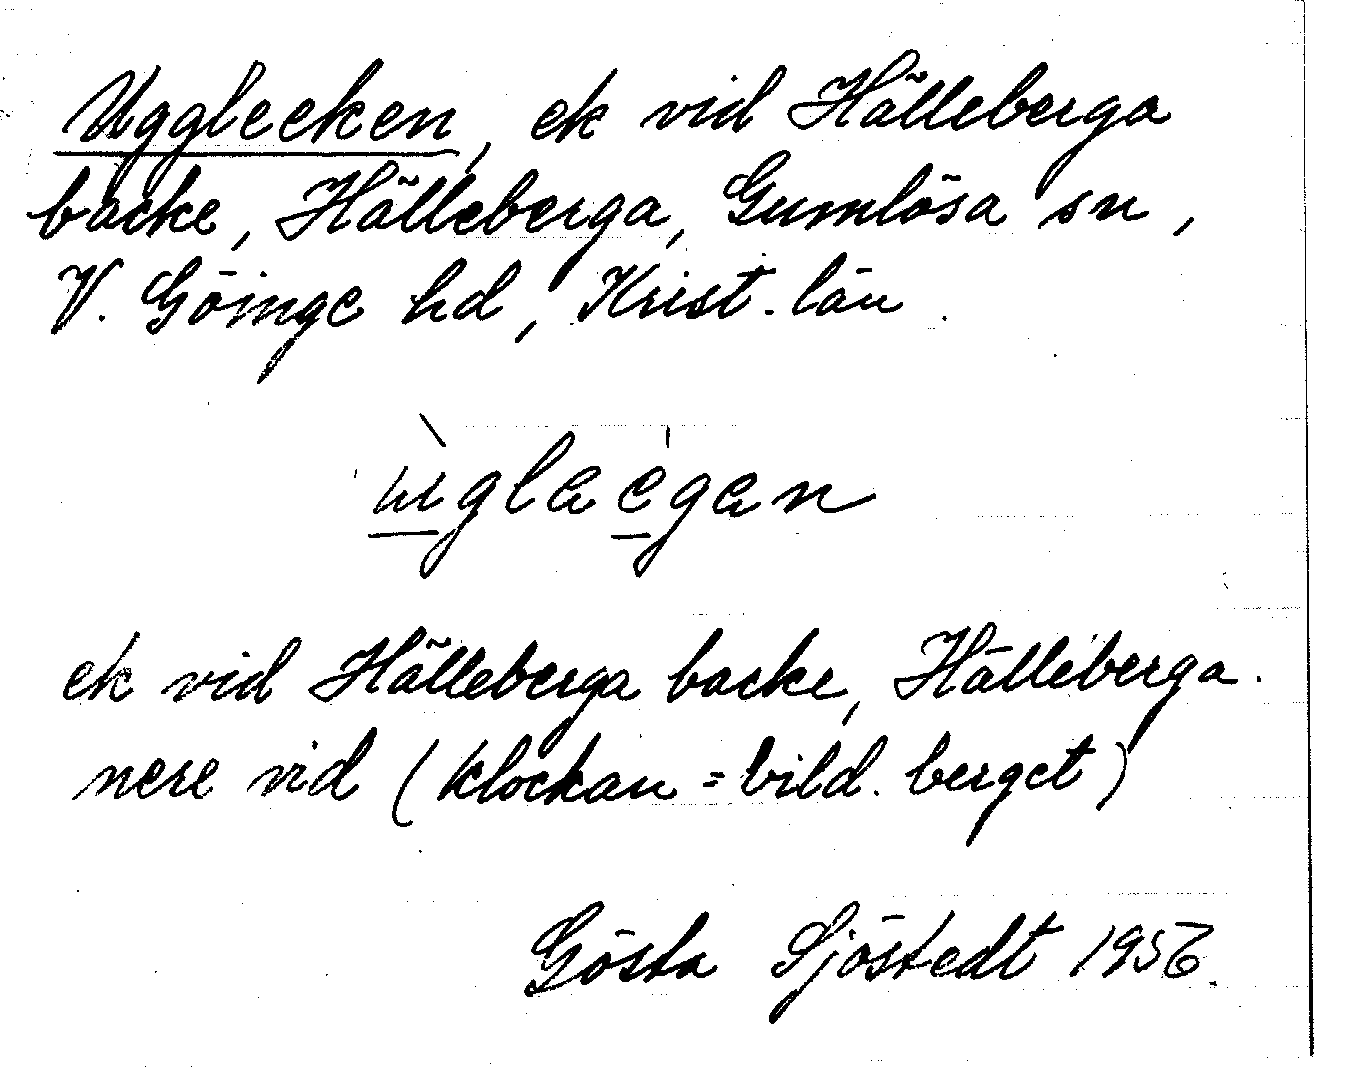 Ugglecken, ek vid Hälleberga
backe, Hälleberga, Gumlösa sn,
V. Göinge hd, Krist. län.
ek vid Hälleberga backe, Hälleberga.
nere vid (klockan = bild. berget)
Gösta Sjöstedt 1956.